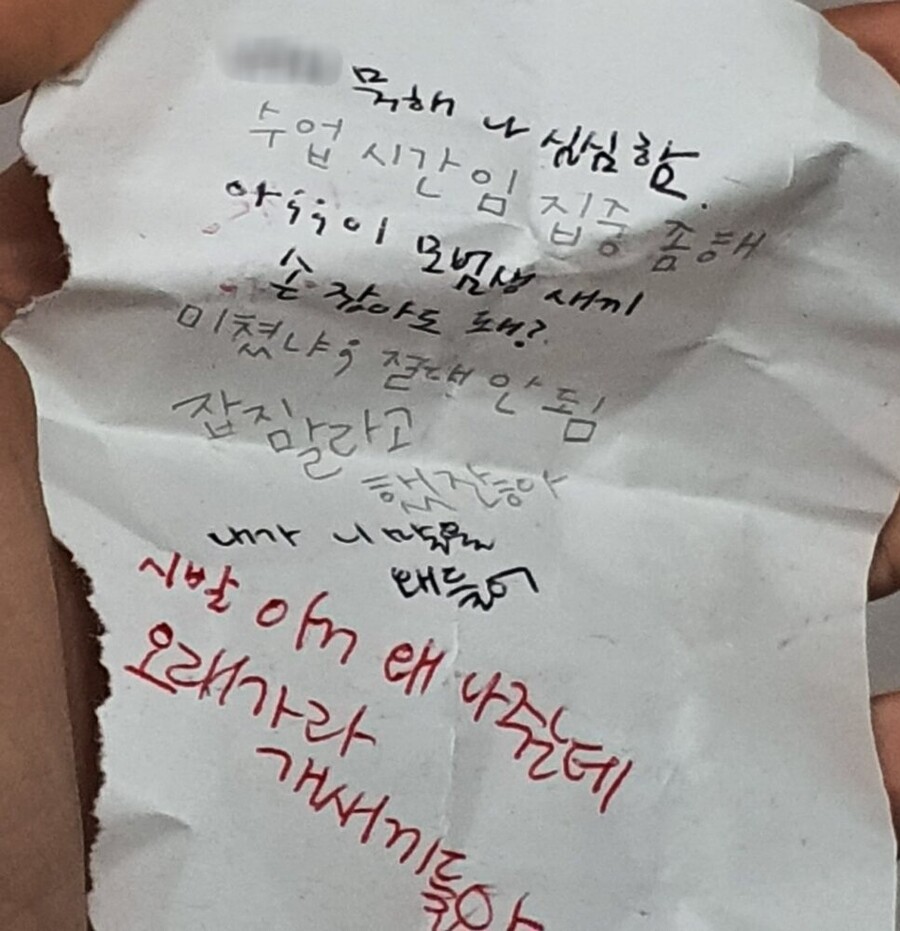 뭑해 나 심심함.
수업 시간임 집중 좀해
아;;이 모범생 새끼
손 잡아도 돼?
미쳤냐; 절대 안 됨
잡지말라고
했잖아
내가 니 말을
왜들어
시발 이거 왜 나줬는데
오래가라
개새끼들아